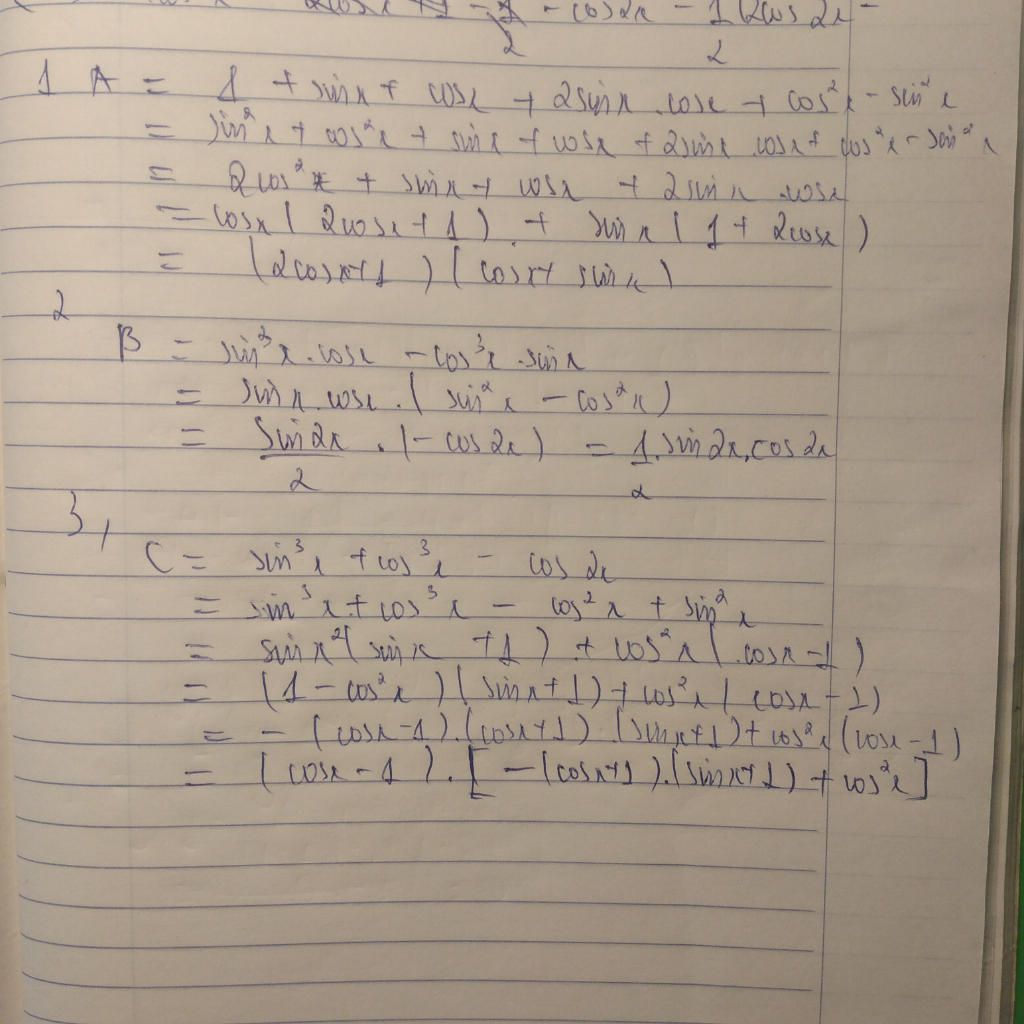 2cosx + 1 - 1/2 - cos2x - 1/2 (2cos 2x -
1 A = 1 + sinx + cosx + 2sinx.cosx + cos²x - sin²x
= sin²x + cos²x + sinx + cosx + 2sinx.cosx + cos²x - sin²x
= 2cos²x + sinx + cosx + 2sinx.cosx
= cosx(2cosx + 1) + sinx(1 + 2cosx)
= (2cosx+1)(cosx+ sinx)
2
B = sin³x.cosx - cos³x.sinx
= sinx.cosx.(sin²x - cos²x)
= sin2x/2 . (-cos2x) = 1/2.sin2x.cos2x
3,
C = sin³x + cos³x - cos2x
= sin³x + cos³x - cos²x + sin²x
= sinx²(sinx +1) + cos²x(cosx-1)
= (1 - cos²x)(sinx+1) + cos²x(cosx-1)
= - (cosx-1).(cosx+1).(sinx+1) + cos²x(cosx-1)
= (cosx-1).[-(cosx+1).(sinx+1) + cos²x]